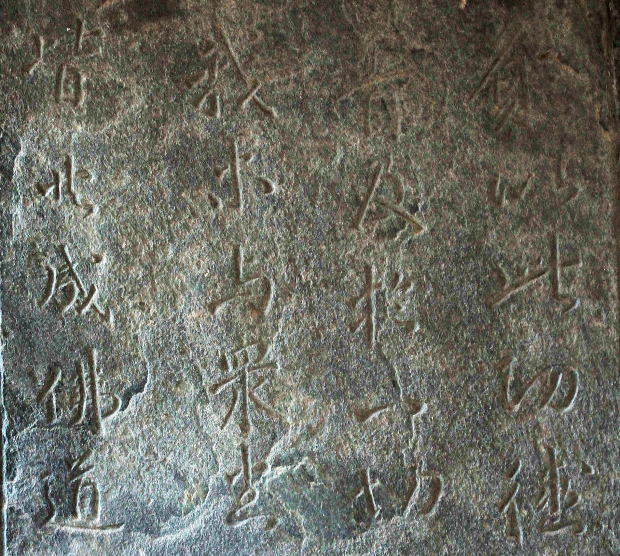 願以此功德
普及於一切
我等与眾生
皆共成佛道